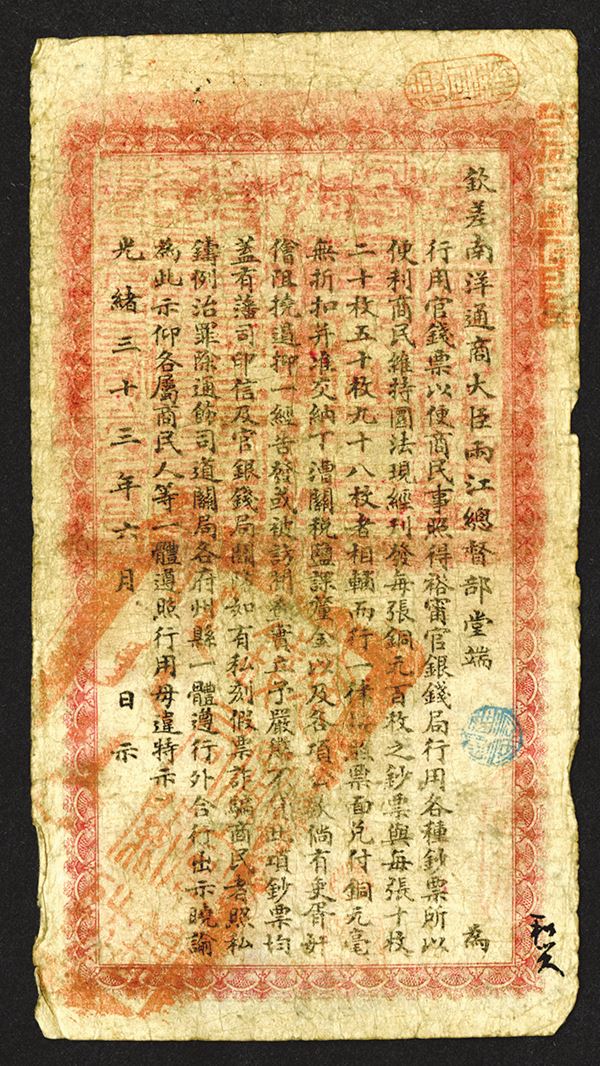 欽差南洋通商大臣兩江總督部堂端 為
行用官錢票以便商民事照得裕甯官銀錢局行用各種鈔票所以
便利商民維持圜法現經刊發每張銅元百枚之鈔票與每張十枚
二十枚五十枚九十八枚者相輔而行一律照票面兌付銅元毫
無折扣并准交納丁漕關稅鹽課釐金以及各項公款倘有吏胥奸
儈阻撓遏抑一經告發或被訪聞查實立予嚴懲不貸此項鈔票均
蓋有藩司印信及官銀錢局關防如有私刻假票詐騙商民者照私
鑄例治罪除通飭司道關局各府州縣一體遵行外合行出示曉諭
為此示仰各屬商民人等一體遵照行用毋違特示
光緒三十三年六月 日示